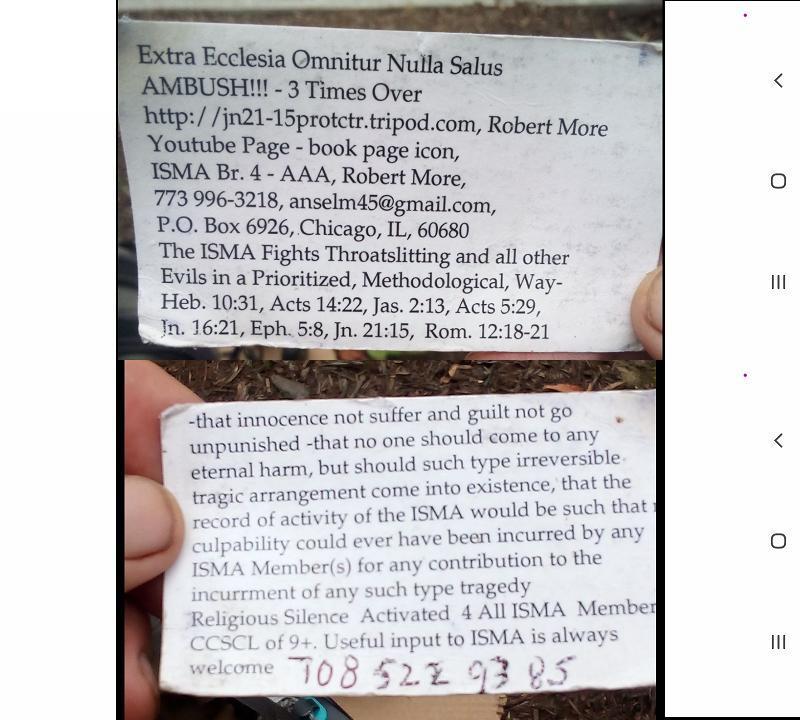 Extra Ecclesia Omnitur Nulla Salus
AMBUSH!!! - 3 Times Over
http://jn21-15protctr.tripod.com, Robert More
Youtube Page - book page icon,
ISMA Br. 4 - AAA, Robert More,
773 996-3218, anselm45@gmail.com,
P.O. Box 6926, Chicago, IL, 60680
The ISMA Fights Throatslitting and all other
Evils in a Prioritized, Methodological, Way-
Heb. 10:31, Acts 14:22, Jas. 2:13, Acts 5:29,
Jn. 16:21, Eph. 5:8, Jn. 21:15, Rom. 12:18-21
-that innocence not suffer and guilt not go
unpunished -that no one should come to any
eternal harm, but should such type irreversible
tragic arrangement come into existence, that the
record of activity of the ISMA would be such that
culpability could ever have been incurred by any
ISMA Member(s) for any contribution to the
incurrment of any such type tragedy
Religious Silence Activated 4 All ISMA Member
CCSCL of 9+. Useful input to ISMA is always
welcome 708 522 9385